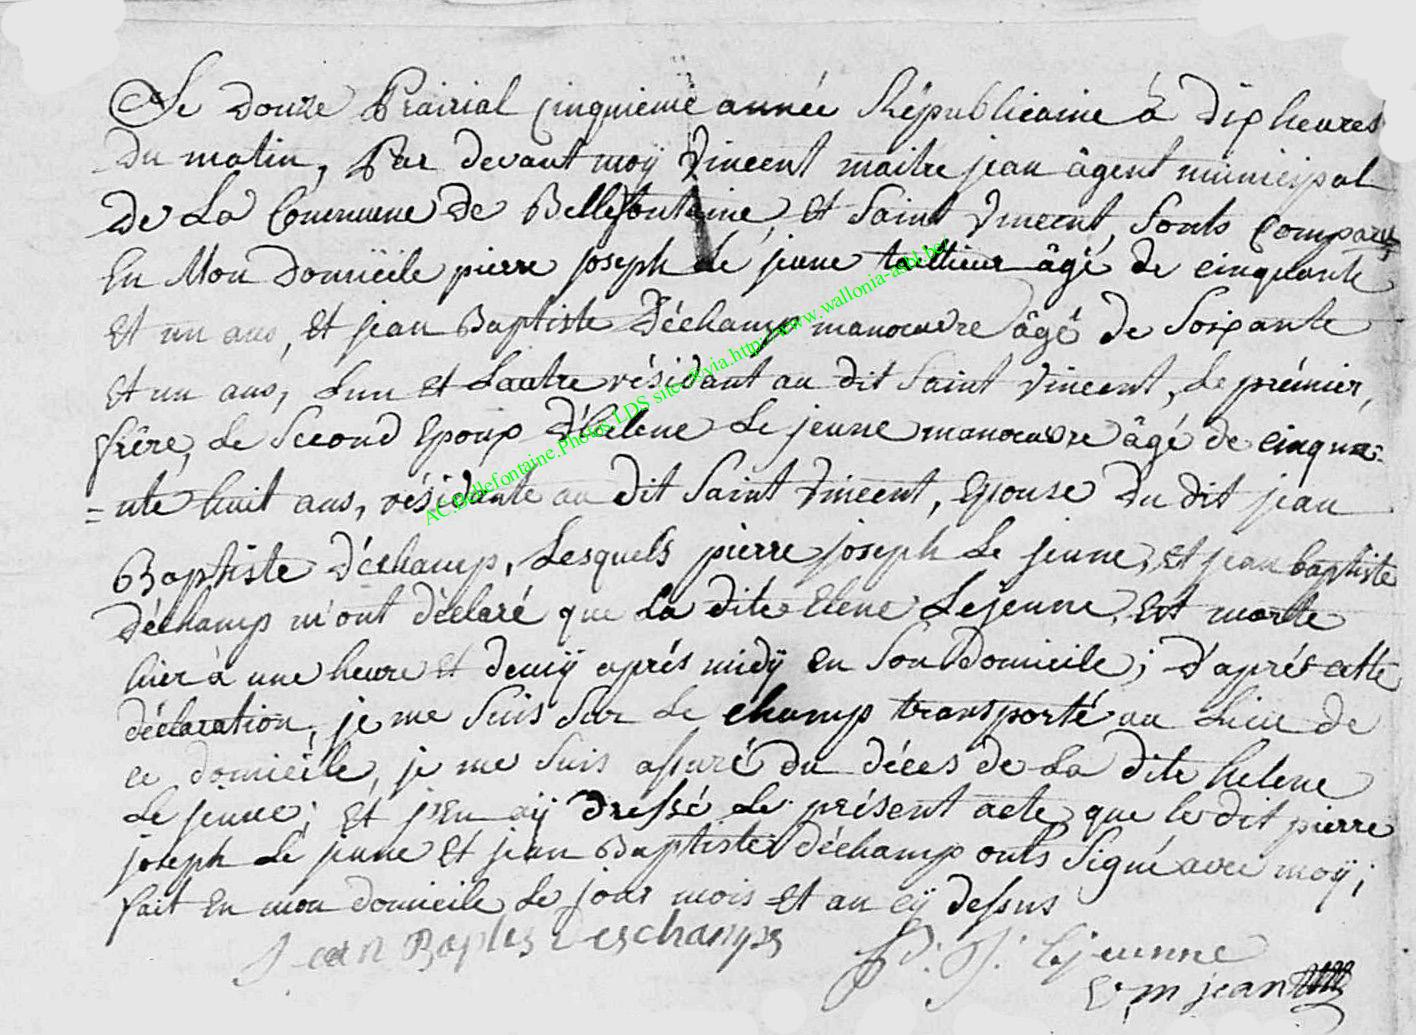 Le douze Prairial cinquieme année Républicaine à dix heures
du matin, Par devant moÿ Vincent maitre jean âgent municipal
de La Commune de Bellefontaine, et Saint Vincent, sonts comparus
En Mon domicile pierre joseph Le jeune tailleur âgé de cinquante
et un ans, et jean Baptiste Déchamp manoeuvre âgé de soixante
et un ans, L'un et L'autre résidant au dit Saint Vincent, Le prémier,
frère, Le second Epoux d'hélene Le jeune manoeuvre âgé de cinqua-
=nte huit ans, résidante au dit Saint Vincent, Epouse du dit jean
Baptiste Déchamp, Lesquels pierre joseph Le jeune, et jean baptiste
Déchamp m'ont déclaré que La dite Elene Lejeune, Est morte
hier à une heure et demiÿ aprés midÿ en son domicile; d'aprés cette
déclaration, je me suis sur Le champ transporté au Lieu de
ce domicile, je me suis assuré du décés de La dite helene
Le jeune; et j'En aÿ dressé Le présent acte que le dit pierre
joseph Le jeune et jean Baptiste Déchamp onts signé avec moÿ;
fait En mon domicile Le jour mois et an cÿ dessus
Jean Baptes Deschamps
P. J. Lejeunne
V, m jean
AC.Bellefontaine.Photos LDS site & via.http://www.wallonia-asbl.be/